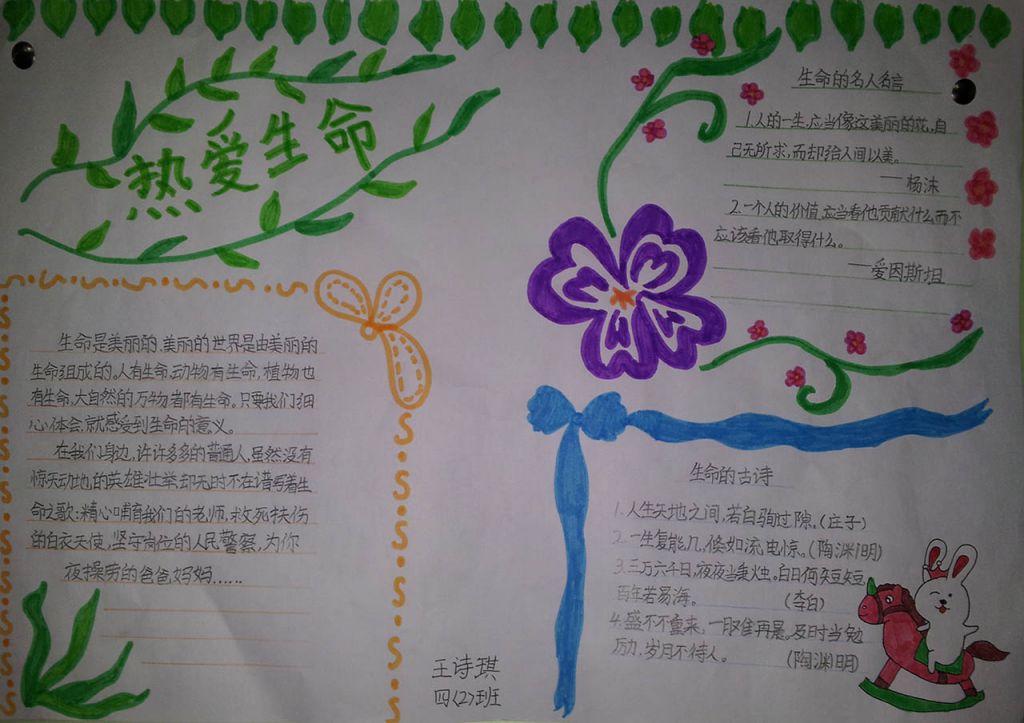 热爱生命
生命是美丽的,美丽的世界是由美丽的
生命组成的,人有生命,动物有生命,植物也
有生命,大自然的万物都有生命。只要我们细
心体会,就感受到生命的意义。
在我们身边,许许多多的普通人,虽然没有
惊天动地的英雄壮举,却无时不在谱写着生
命之歌:精心哺育我们的老师,救死扶伤
的白衣天使,坚守岗位的人民警察,为你
夜操劳的爸爸妈妈……
王诗琪
四(2)班
生命的名人名言
1.人的一生,应当像这美丽的花,自
己无所求,而却给人间以美。
——杨沫
2.一个人的价值,应当看他贡献什么,而不
应该看他取得什么。
——爱因斯坦
生命的古诗
1.人生天地之间,若白驹过隙。(庄子)
2.一生复能几,倏如流电惊。(陶渊明)
3.三万六千日,夜夜当秉烛。白日何短短,
百年若易海。 (李白)
4.盛不重来,一难再晨。及时当勉
励,岁月不待人。 (陶渊明)